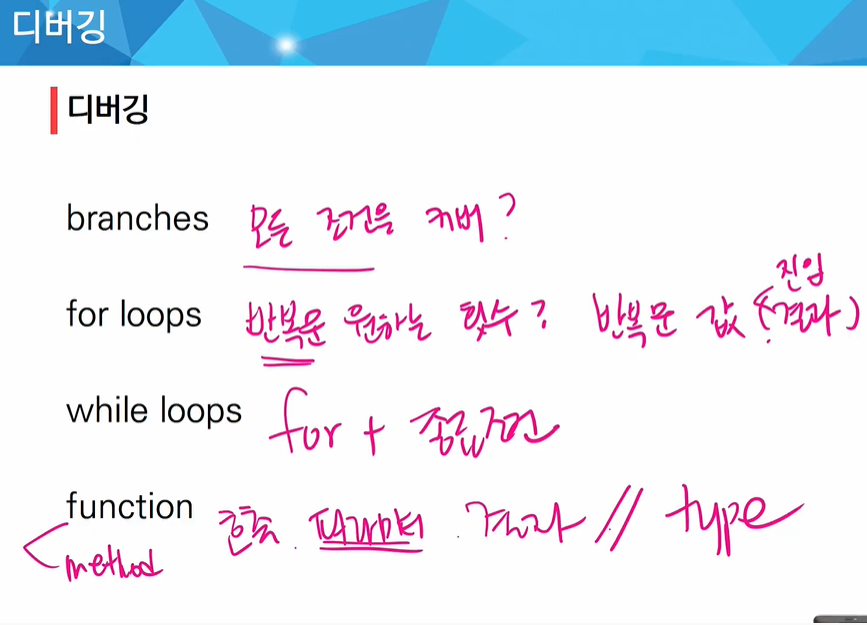 디버깅
디버깅
branches 모든 조건을 커버?
진입
for loops 반복문 원하는 횟수? 반복문 값 (결과)
while loops for + 종료조건
function 호출 파라미터 결과 // type
method